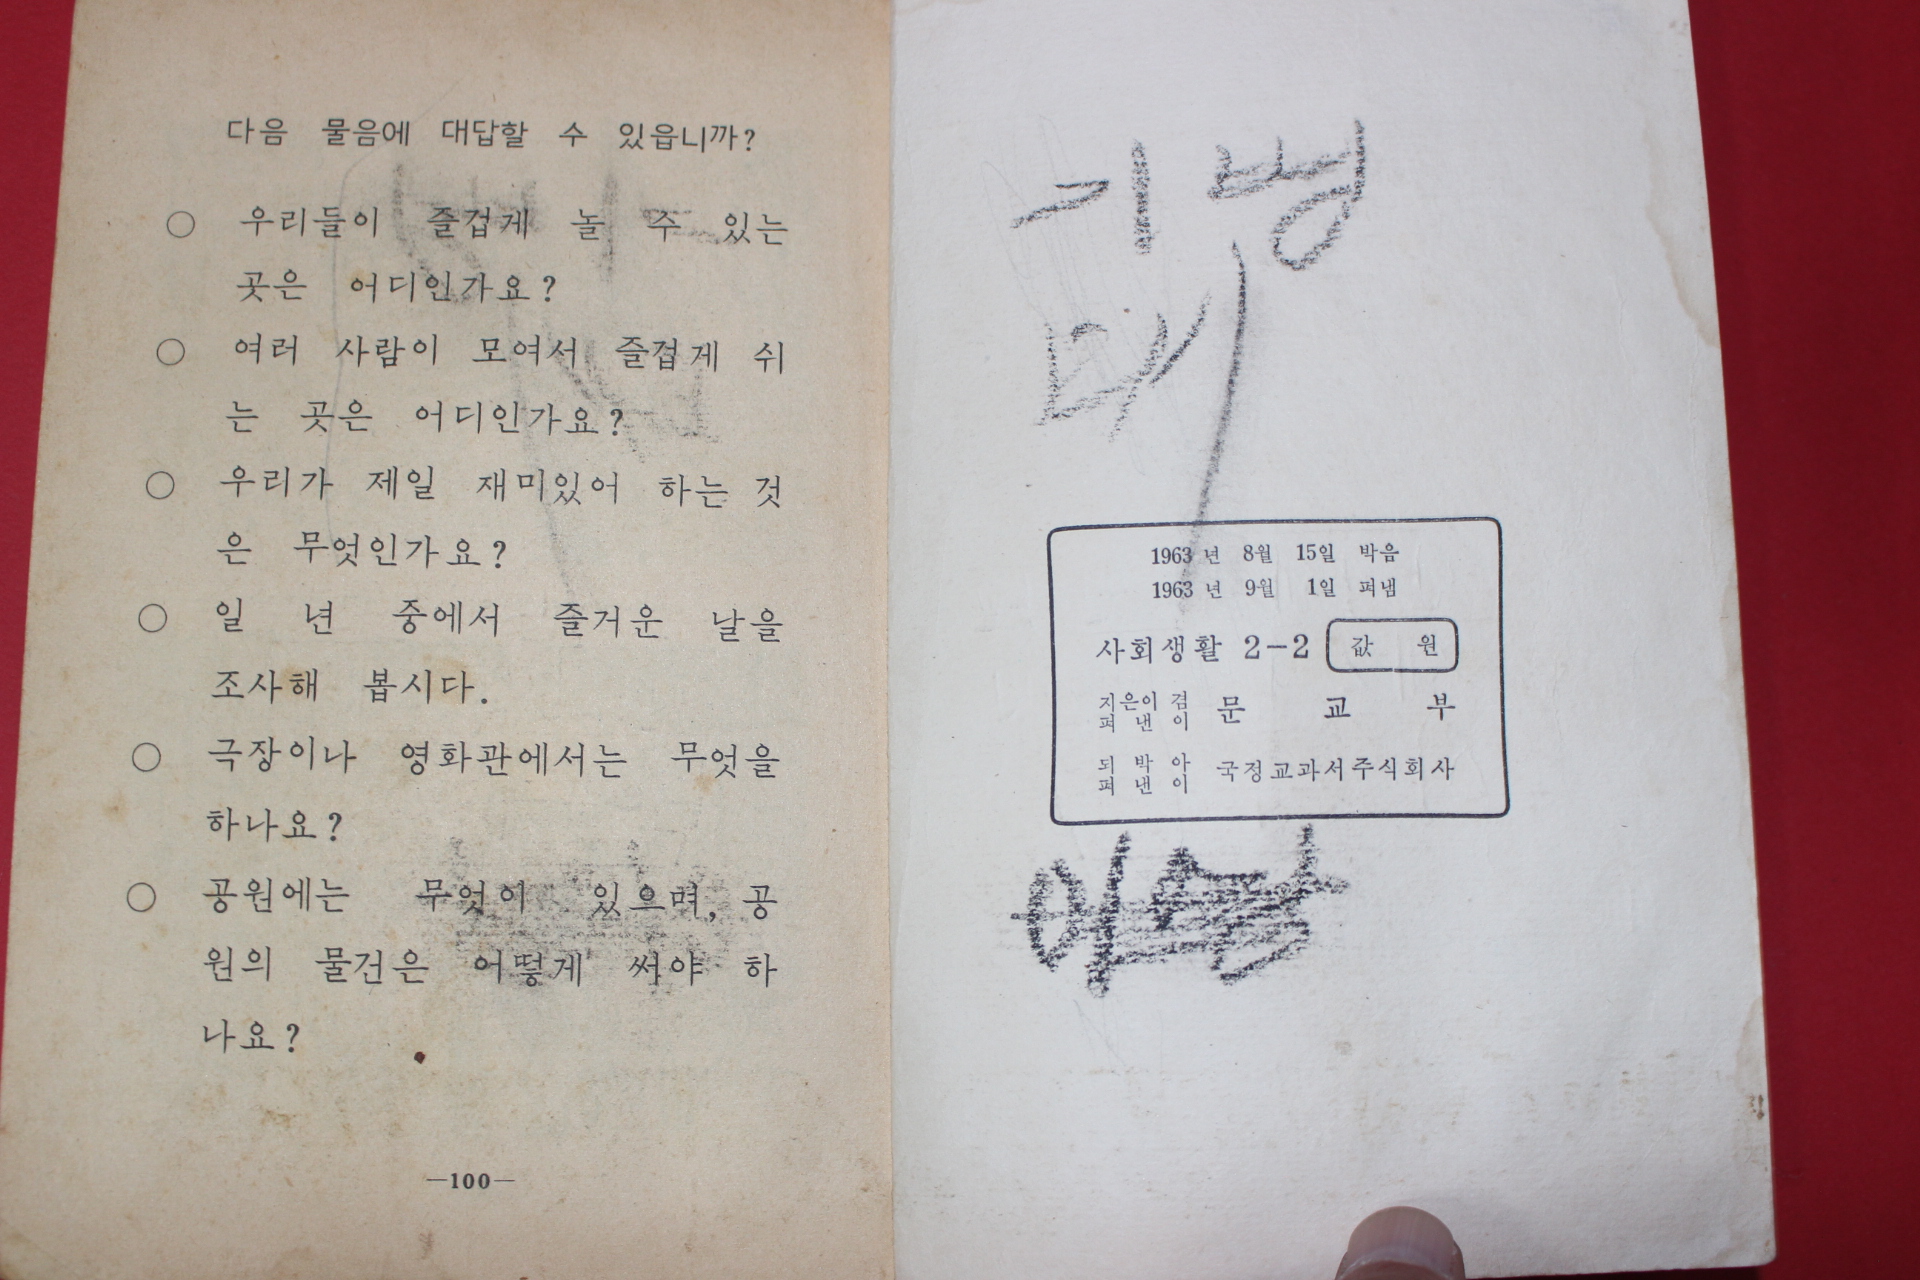 다음 물음에 대답할 수 있읍니까?
○ 우리들이 즐겁게 놀 수 있는
곳은 어디인가요?
○ 여러 사람이 모여서 즐겁게 쉬
는 곳은 어디인가요?
○ 우리가 제일 재미있어 하는 것
은 무엇인가요?
○ 일 년 중에서 즐거운 날을
조사해 봅시다.
○ 극장이나 영화관에서는 무엇을
하나요?
○ 공원에는 무엇이 있으며, 공
원의 물건은 어떻게 써야 하
나요?
—100—
1963년 8월 15일 박음
1963년 9월 1일 펴냄
사회생활 2-2 값 원
지은이 겸
펴 낸 이
문 교 부
되 박 아
펴 낸 이
국정교과서주식회사